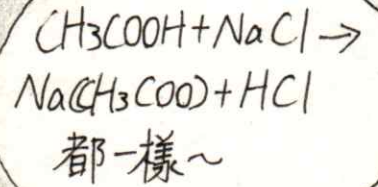 CH3COOH+NaCl→
Na(CH3COO)+HCl
都一樣~